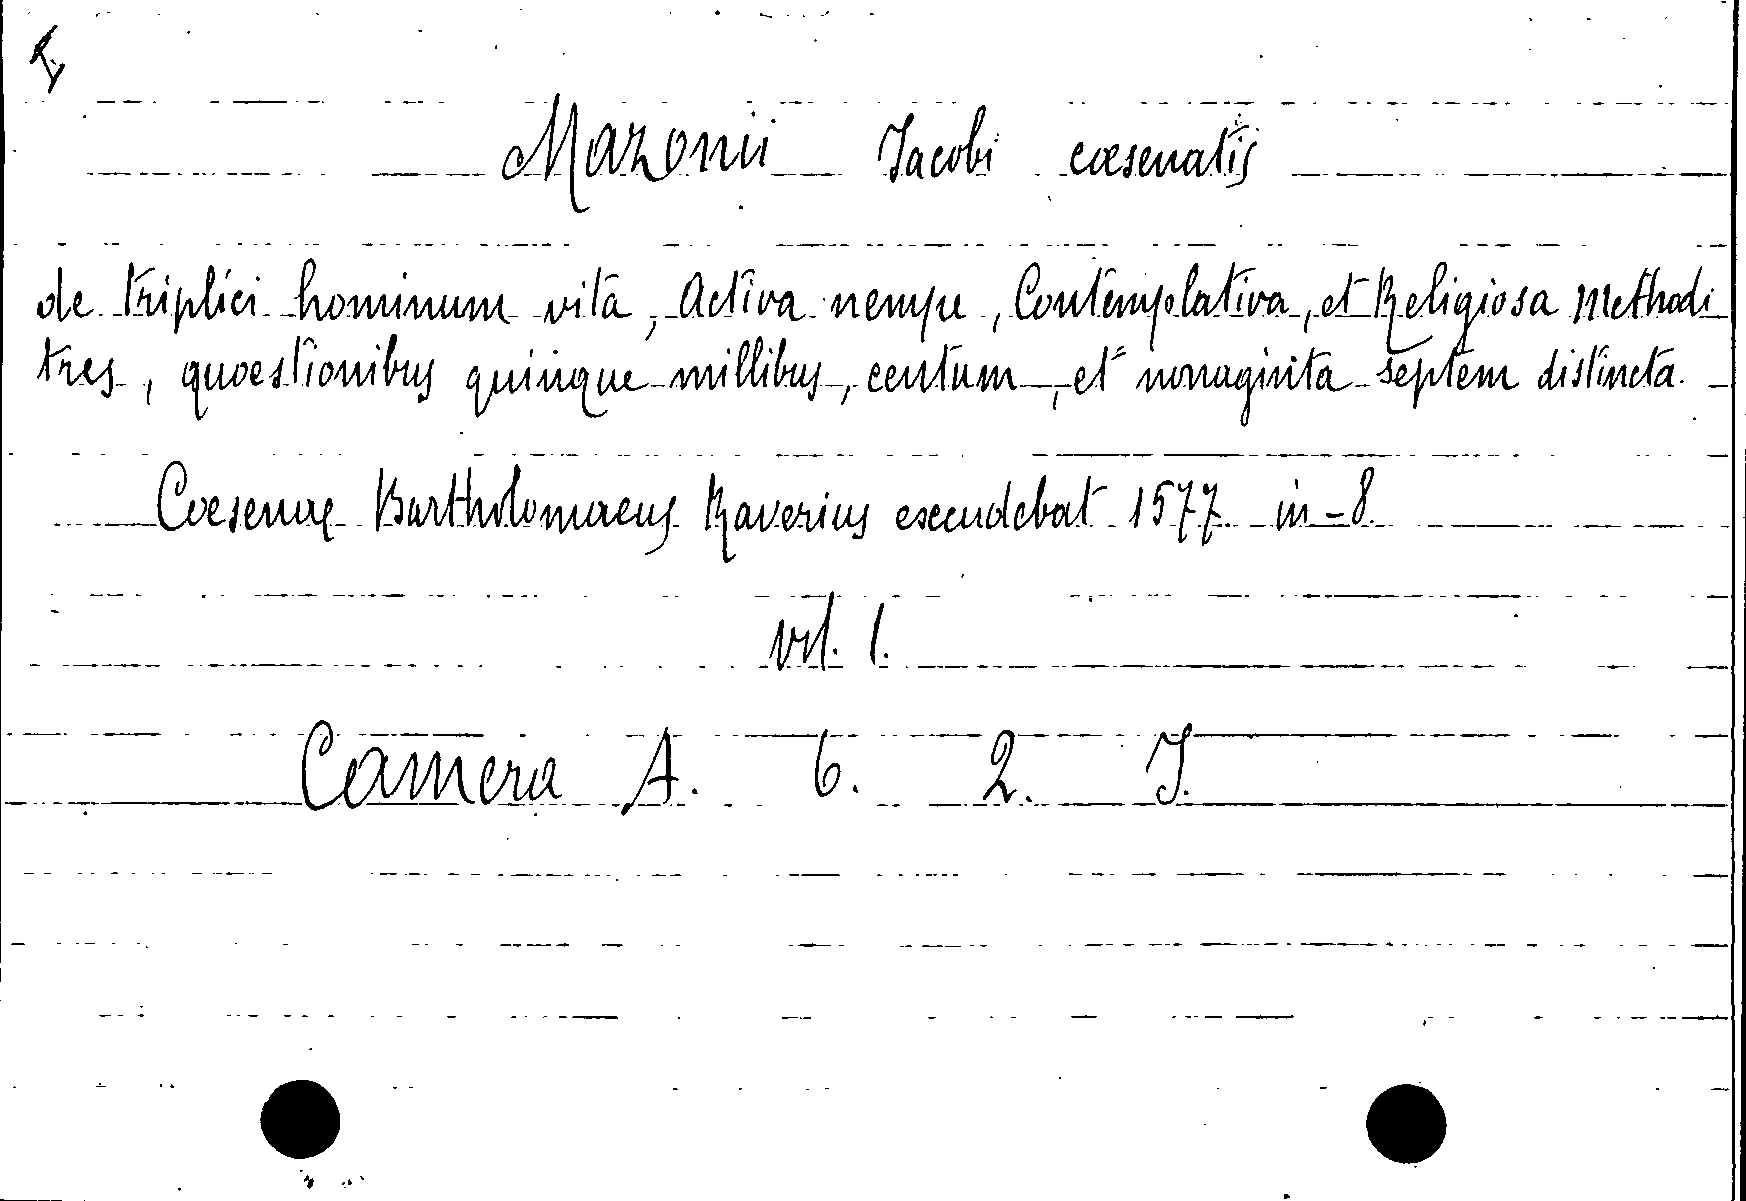 Mazonii Jacobi cæsenatis
de triplici hominum vita, Activa nempe, Contemplativa, et Religiosa Methodi
tres, quæstionibus quinque millibus, centum, et nonaginta septem distincta.
Cæsenæ Bartholomaeus Raverius excudebat 1577 in-8
vol. 1.
Camera A. 6. 2. J.